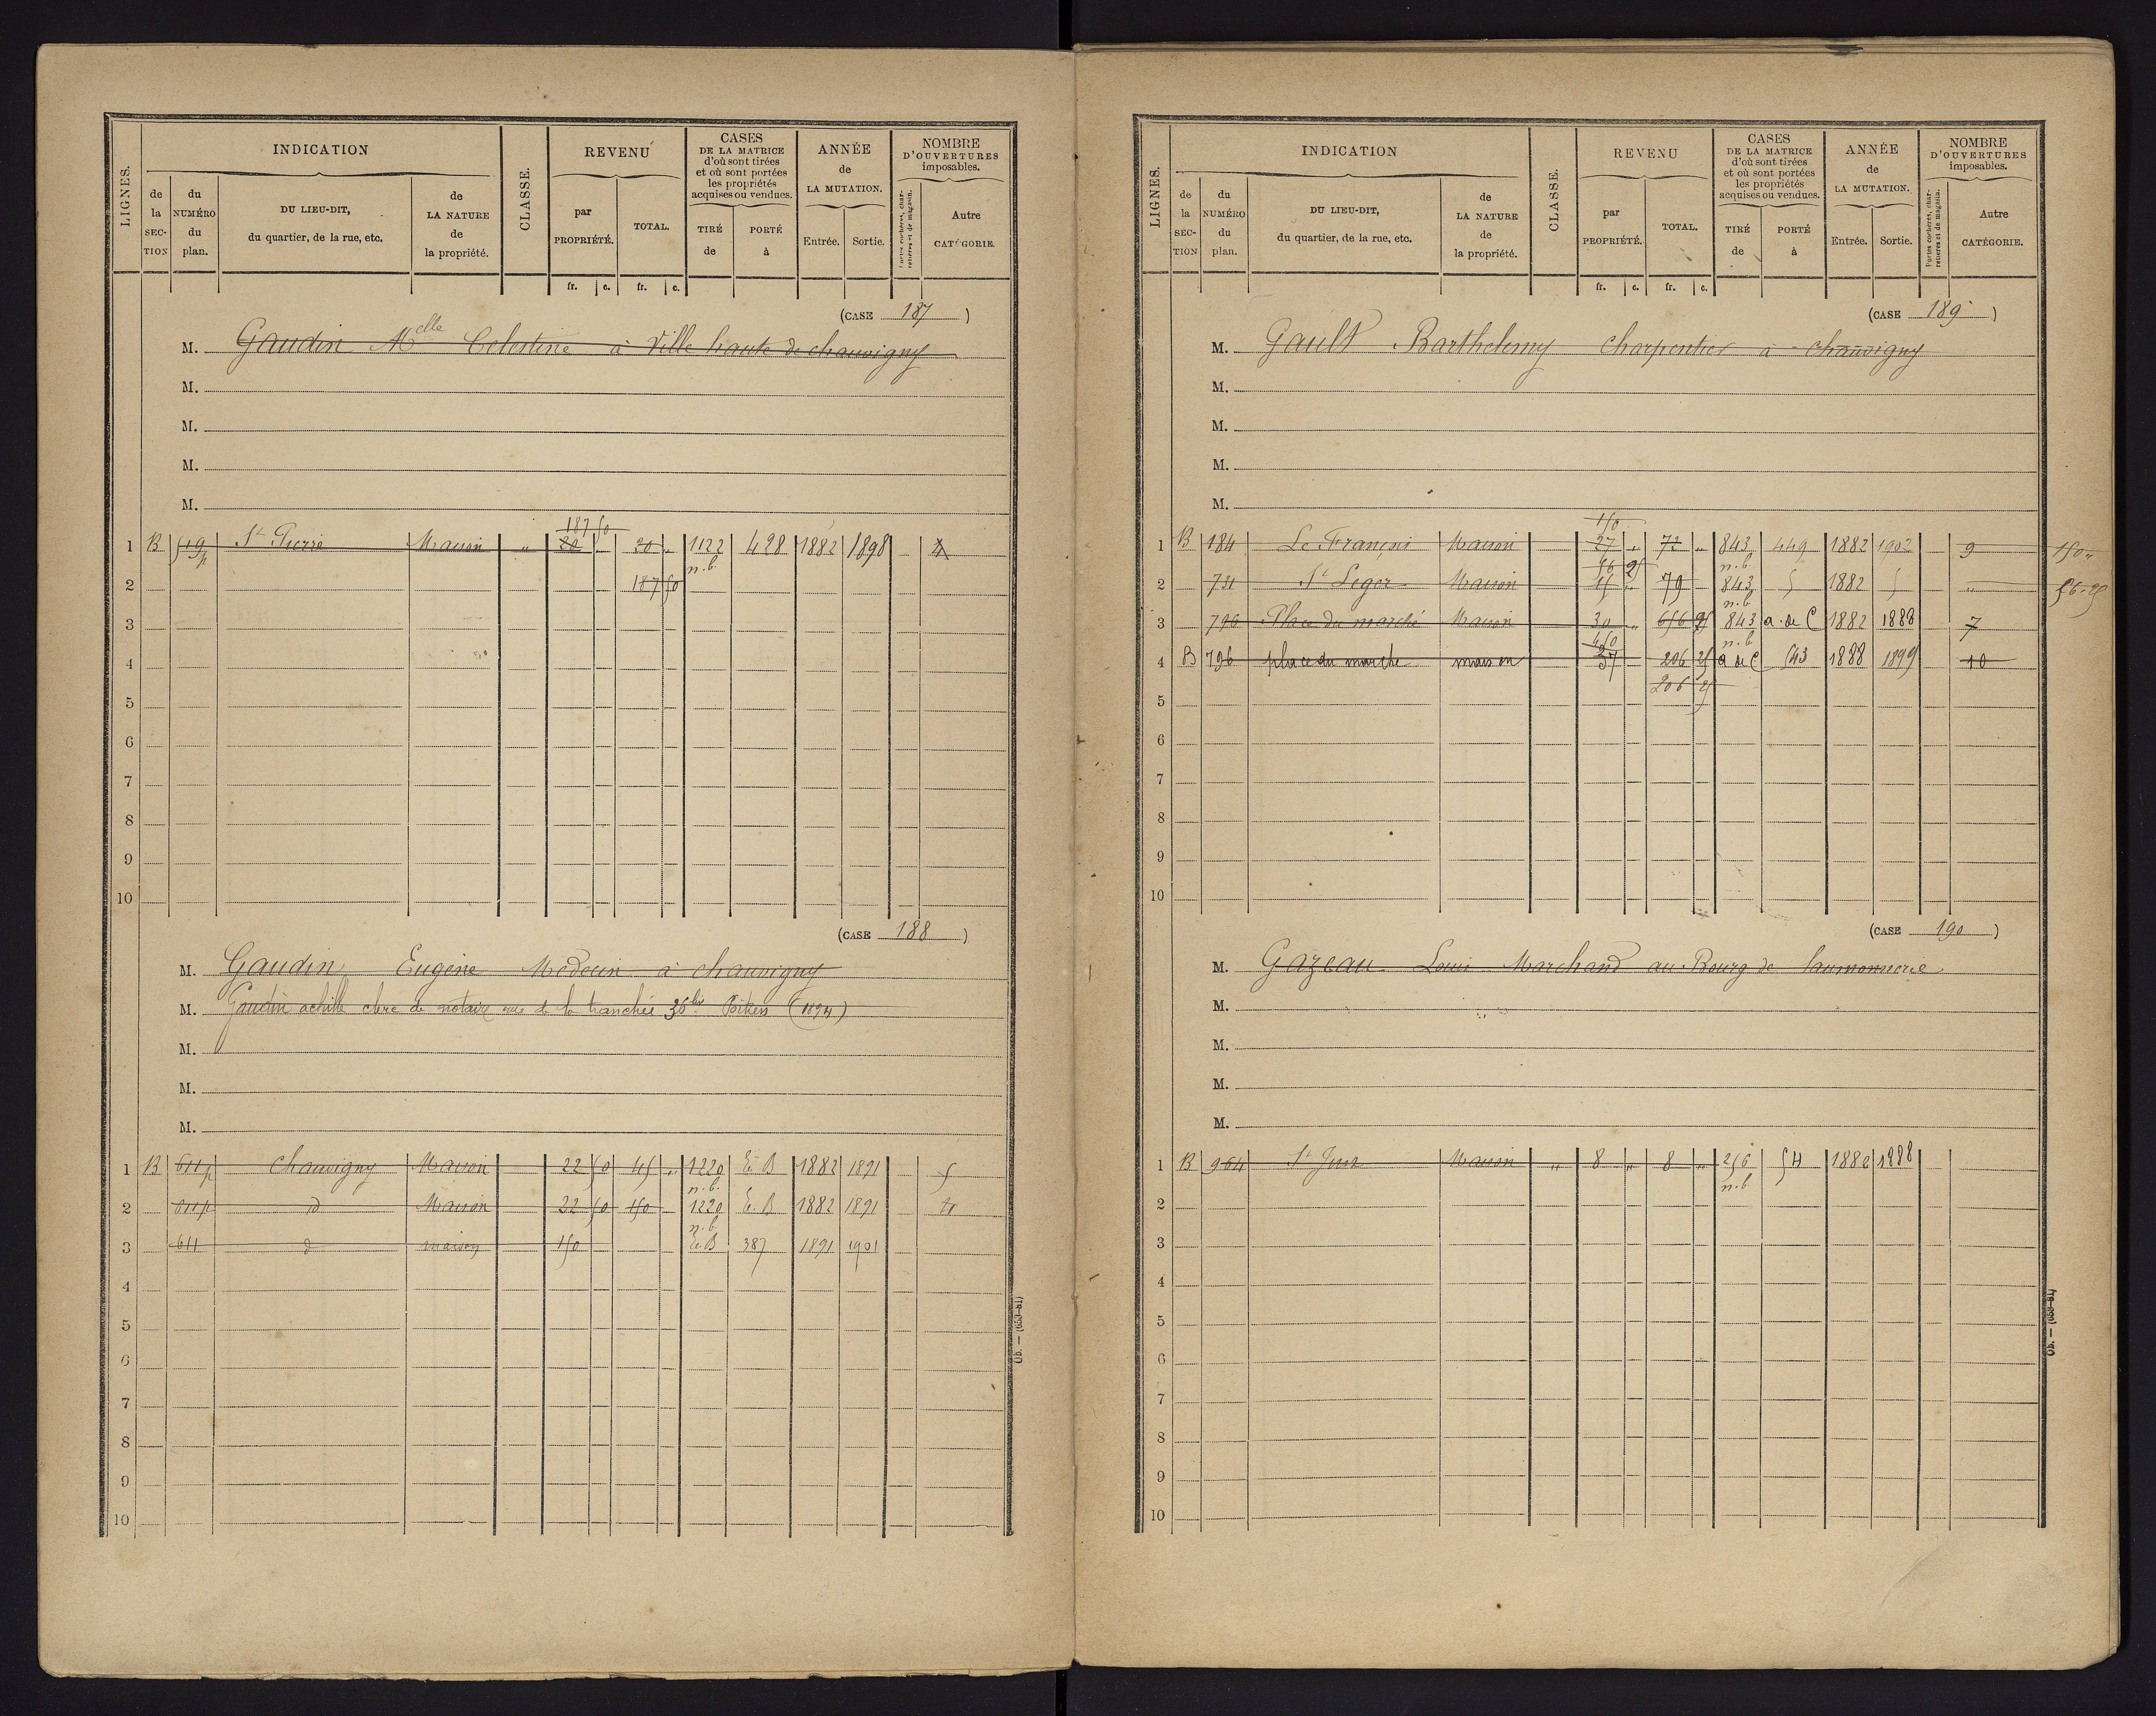 LIGNES.
INDICATION
de la SECTION
du NUMÉRO du plan.
DU LIEU-DIT, du quartier, de la rue, etc.
de LA NATURE de la propriété.
CLASSE.
REVENU
par PROPRIÉTÉ.
TOTAL.
CASES DE LA MATRICE d'où sont tirées et où sont portées les propriétés acquises ou vendues.
TIRÉ de
PORTÉ à
ANNÉE de LA MUTATION.
Entrée.
Sortie.
NOMBRE D'OUVERTURES imposables.
Portes cochères, charretières et de magasin.
Autre CATÉGORIE.
fr. c. fr. c.
(CASE 187)
M. Gaudin Melle Celestine à Ville haute de chauvigny
M.
M.
M.
M.
187 50
1 B 519p St Pierre Maison " 20 " 20 " 1122 428 1882 1898 4
n.b.
2 187 50
3
4
5
6
7
8
9
10
(CASE 188)
M. Gaudin Eugène Medecin à chauvigny
M. Gaudin achille clerc de notaire rue de la tranchée 36bis Poitiers (1894)
M.
M.
M.
1 B 611p Chauvigny Maison 22 50 45 " 1220 E. B 1882 1891 5
n.b.
2 611p d Maison 22 50 150 1220 E. B 1882 1891 4
n.b.
3 611 d maison 150 E.B 387 1891 1901
4
5
6
7
8
9
10
LIGNES.
INDICATION
de la SECTION
du NUMÉRO du plan.
DU LIEU-DIT, du quartier, de la rue, etc.
de LA NATURE de la propriété.
CLASSE.
REVENU
par PROPRIÉTÉ.
TOTAL.
CASES DE LA MATRICE d'où sont tirées et où sont portées les propriétés acquises ou vendues.
TIRÉ de
PORTÉ à
ANNÉE de LA MUTATION.
Entrée.
Sortie.
NOMBRE D'OUVERTURES imposables.
Portes cochères, charretières et de magasin.
Autre CATÉGORIE.
fr. c. fr. c.
(CASE 189)
M. Gault Barthelemy Charpentier à chauvigny
M.
M.
M.
M.
150
1 B 184 Le François Maison 27 " 72 " 843 449 1882 1902 9 150 "
56 25 n.b.
2 731 St Leger Maison 15 " 79 843 1882 " 56-25
n.b
3 796 Place du marché Maison 30 " 656 25 843 a. de C 1882 1888 7
450 n.b
4 B 796 place du marche maison 37 206 25 a de C 543 1888 1899 10
206 25
5
6
7
8
9
10
(CASE 190)
M. Gazeau Louis Marchand au Bourg de laumonnerie
M.
M.
M.
M.
1 B 964 St Maison " 8 " 8 " 256 54 1882 1888
n.b
2
3
4
5
6
7
8
9
10